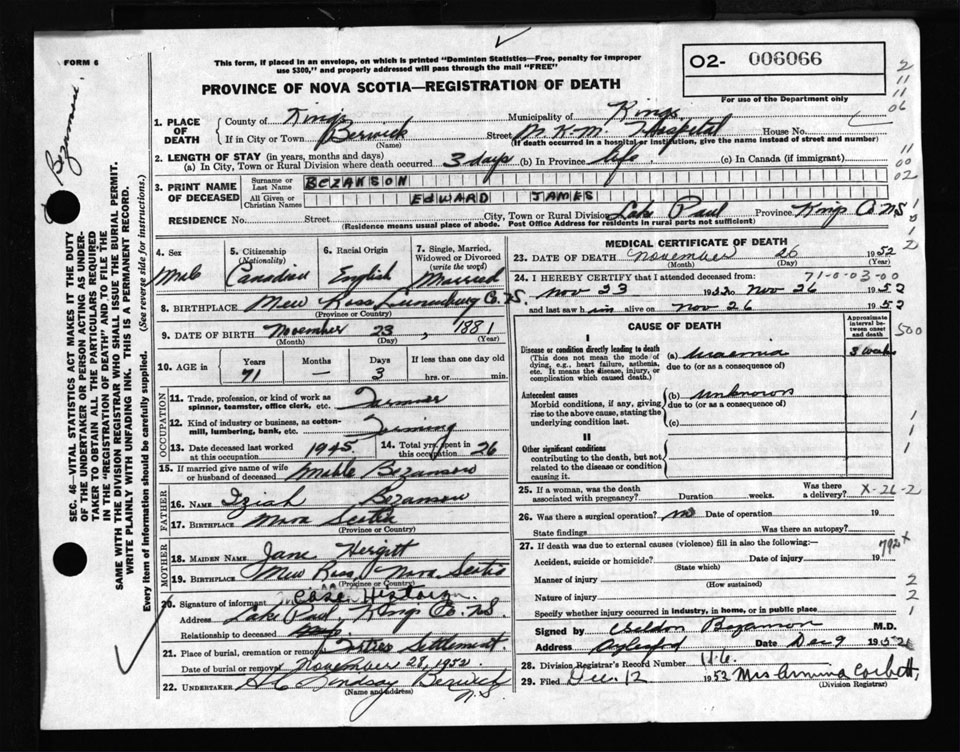 FORM 6
This form, if placed in an envelope, on which is printed "Dominion Statistics—Free, penalty for improper
use $300," and properly addressed will pass through the mail "FREE"
PROVINCE OF NOVA SCOTIA—REGISTRATION OF DEATH
O2- 006066
For use of the Department only
1. PLACE OF DEATH
County of Kings Municipality of Kings
If in City or Town Berwick Street Hospital House No.
(Name) (If death occurred in a hospital or institution, give the name instead of street and number)
2. LENGTH OF STAY (in years, months and days)
(a) In City, Town or Rural Division where death occurred 3 days (b) In Province life (c) In Canada (if immigrant)
3. PRINT NAME OF DECEASED
Surname or Last Name BEZANSON
All Given or Christian Names EDWARD JAMES
RESIDENCE No. Street City, Town or Rural Division Lake Paul Province Kings Co. NS
(Residence means usual place of abode. Post Office Address for residents in rural parts not sufficient)
4. Sex
Male
5. Citizenship
(Nationality)
Canadian
6. Racial Origin
English
7. Single, Married,
Widowed or Divorced
(write the word)
Married
8. BIRTHPLACE New Ross Lunenburg Co. N.S.
(Province or Country)
9. DATE OF BIRTH November 23, 1881
(Month) (Day) (Year)
10. AGE in Years Months Days If less than one day old
71 — 3 hrs. or min.
OCCUPATION
11. Trade, profession, or kind of work as
spinner, teamster, office clerk, etc. Farmer
12. Kind of industry or business, as cotton-
mill, lumbering, bank, etc. Farming
13. Date deceased last worked
at this occupation 1945
14. Total yrs. spent in
this occupation 26
15. If married give name of wife
or husband of deceased Bezanson
FATHER
16. NAME Iziah Bezanson
17. BIRTHPLACE Nova Scotia
(Province or Country)
MOTHER
18. MAIDEN NAME Jane
19. BIRTHPLACE New Ross, Nova Scotia
(Province or Country)
20. Signature of informant Case History
Address Lake Paul, Kings Co. N.S.
Relationship to deceased
21. Place of burial, cremation or removal Settlement
Date of burial or removal November 28, 1952.
22. UNDERTAKER Lindsay Berwick
N.S.
(Name and address)
MEDICAL CERTIFICATE OF DEATH
23. DATE OF DEATH November 26 1952
(Month) (Day) (Year)
24. I HEREBY CERTIFY that I attended deceased from:
71-0-03-00
Nov 23 1952 to Nov 26 1952
and last saw him alive on Nov 26 1952
CAUSE OF DEATH
Approximate
interval be-
tween onset
and death
I
Disease or condition directly leading to death
(This does not mean the mode of
dying, e.g., heart failure, asthenia,
etc. It means the disease, injury, or
complication which caused death.)
(a) Uraemia 3 weeks
due to (or as a consequence of)
Antecedent causes
Morbid conditions, if any, giving
rise to the above cause, stating the
underlying condition last.
(b) unknown
due to (or as a consequence of)
(c)
II
Other significant conditions
contributing to the death, but not
related to the disease or condition
causing it.
25. If a woman, was the death
associated with pregnancy? Duration weeks. Was there
a delivery? X-26-2
26. Was there a surgical operation? no Date of operation 19
State findings Was there an autopsy?
27. If death was due to external causes (violence) fill in also the following:—
792x
Accident, suicide or homicide? Date of injury 19
(State which)
Manner of injury
(How sustained)
Nature of injury
Specify whether injury occurred in industry, in home, or in public place
Signed by Bezanson M.D.
Address Aylesford Date Dec 9 1952
28. Division Registrar's Record Number 116.
29. Filed Dec. 12 1952 Mrs Corbett,
(Division Registrar)
Bezanson
SEC. 46—VITAL STATISTICS ACT MAKES IT THE DUTY
OF THE UNDERTAKER OR PERSON ACTING AS UNDER-
TAKER TO OBTAIN ALL THE PARTICULARS REQUIRED
IN THE "REGISTRATION OF DEATH" AND TO FILE THE
SAME WITH THE DIVISION REGISTRAR WHO SHALL ISSUE THE BURIAL PERMIT.
WRITE PLAINLY WITH UNFADING INK. THIS IS A PERMANENT RECORD.
Every item of information should be carefully supplied. (See reverse side for instructions.)
2
11
11
06
11
00
02
500
1
1
1
2
2